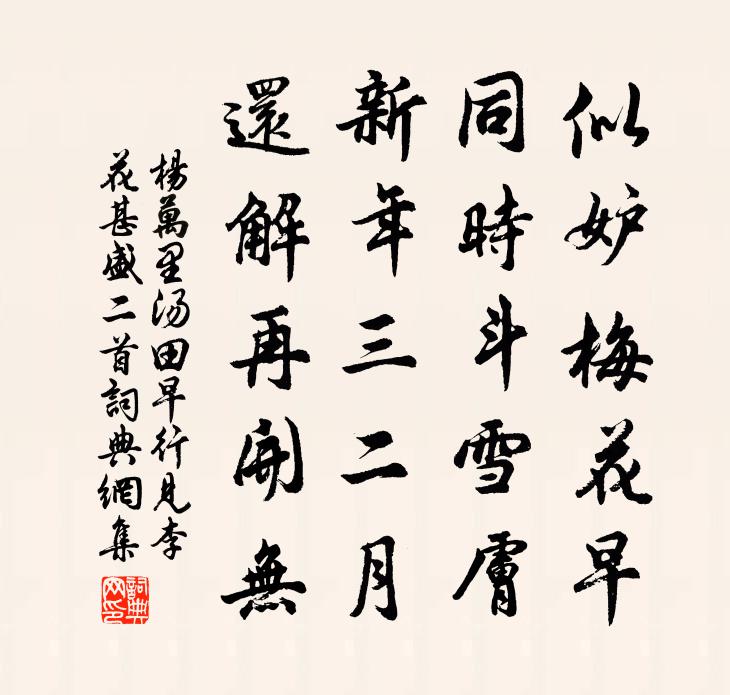 似妒梅花早
同時斗雪膚
新年三二月
還解再開無
楊萬里湯田早行見李
花甚盛二首詞典網集
詞典
网印